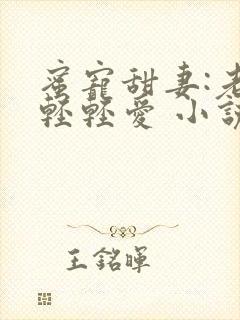 蜜寵甜妻:老
輕輕愛 小說
王銘暉